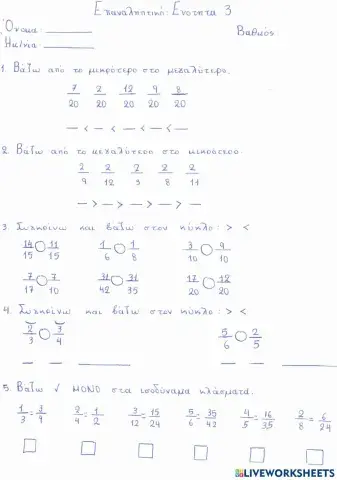 Επαναληπτικό: Ενότητα 3
Όνομα:
Ημ/νία: Βαθμός
1. Βάζω από το μικρότερο στο μεγαλύτερο.
7/20 2/20 12/20 9/20 8/20
— < — < — < — < —
2. Βάζω από το μεγαλύτερο στο μικρότερο.
2/9 2/12 2/3 2/8 2/11
— > — > — > — > —
3. Συγκρίνω και βάζω στον κύκλο: > <
14/15 ○ 11/15 1/6 ○ 1/8 3/10 ○ 9/10
7/17 ○ 7/10 31/42 ○ 31/35 17/20 ○ 12/20
4. Συγκρίνω και βάζω στον κύκλο: > <
2/3 ○ 3/4 5/6 ○ 2/5
5. Βάζω √ ΜΟΝΟ στα ισοδύναμα κλάσματα.
1/3 = 3/9 2/4 = 1/2 3/12 = 15/24 5/6 = 35/42 4/5 = 16/35 2/8 = 6/24
LIVEWORKSHEETS